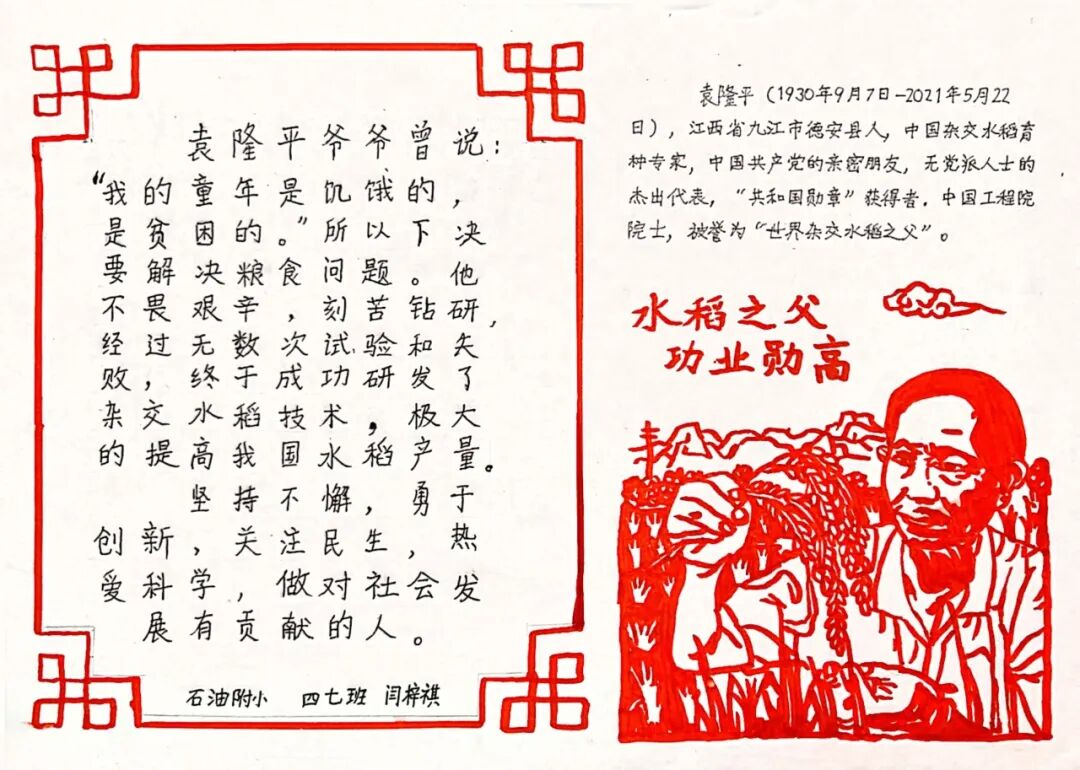 袁隆平爷爷曾说：
“我的童年是饥饿的，
是贫困的。”所以下决
要解决粮食问题。他
不畏艰辛，刻苦钻研，
经过无数次试验和失
败，终于成功研发了
杂交水稻技术，极大
的提高我国水稻产量。
坚持不懈，勇于
创新，关注民生，热
爱科学，做对社会发
展有贡献的人。
石油附小 四七班 闫梓祺
袁隆平（1930年9月7日-2021年5月22
日），江西省九江市德安县人，中国杂交水稻育
种专家，中国共产党的亲密朋友，无党派人士的
杰出代表，“共和国勋章”获得者．中国工程院
院士，被誉为“世界杂交水稻之父”。
水稻之父
功业勋高